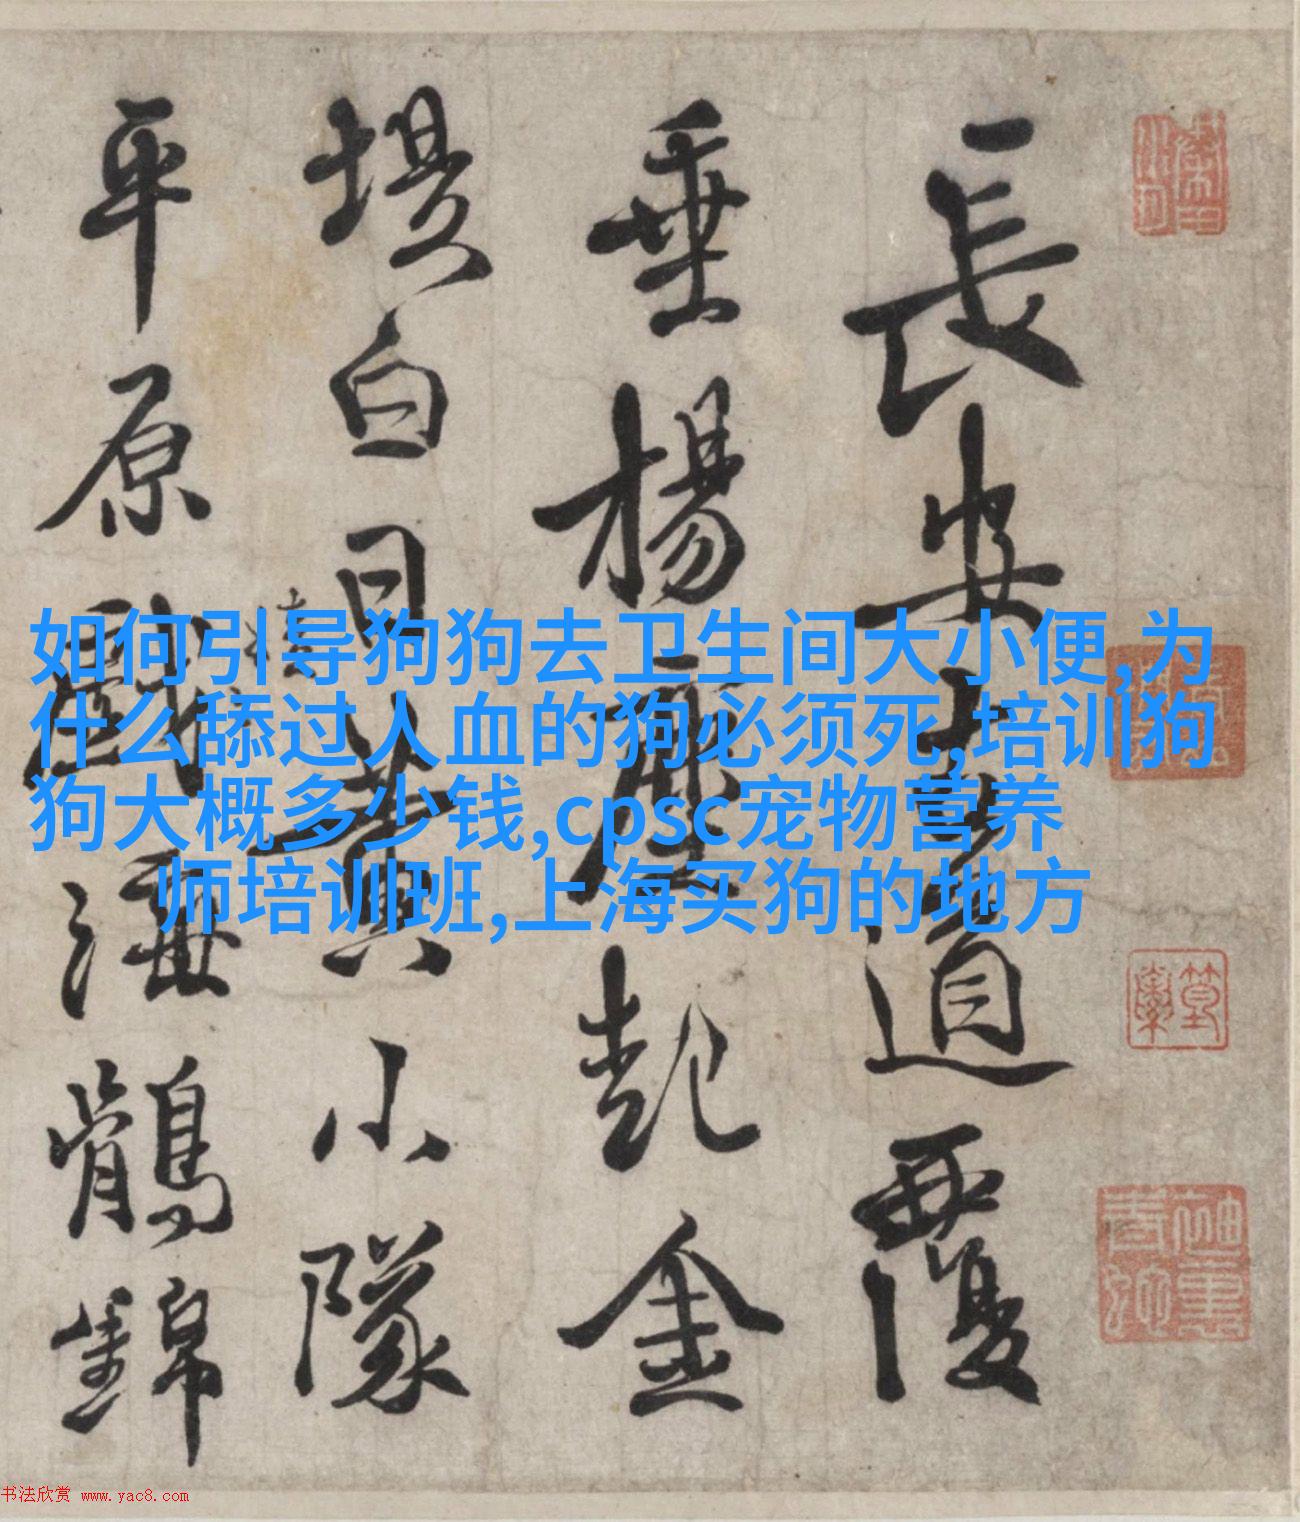 長安道覆
垂楊起金
堤白日黄小隊
平原戲海鶻錦
如何引导狗狗去卫生间大小便,为
什么舔过人血的狗必须死,培训狗
狗大概多少钱,cpsc宠物营养
师培训班,上海买狗的地方
书法欣赏 www.yac8.com